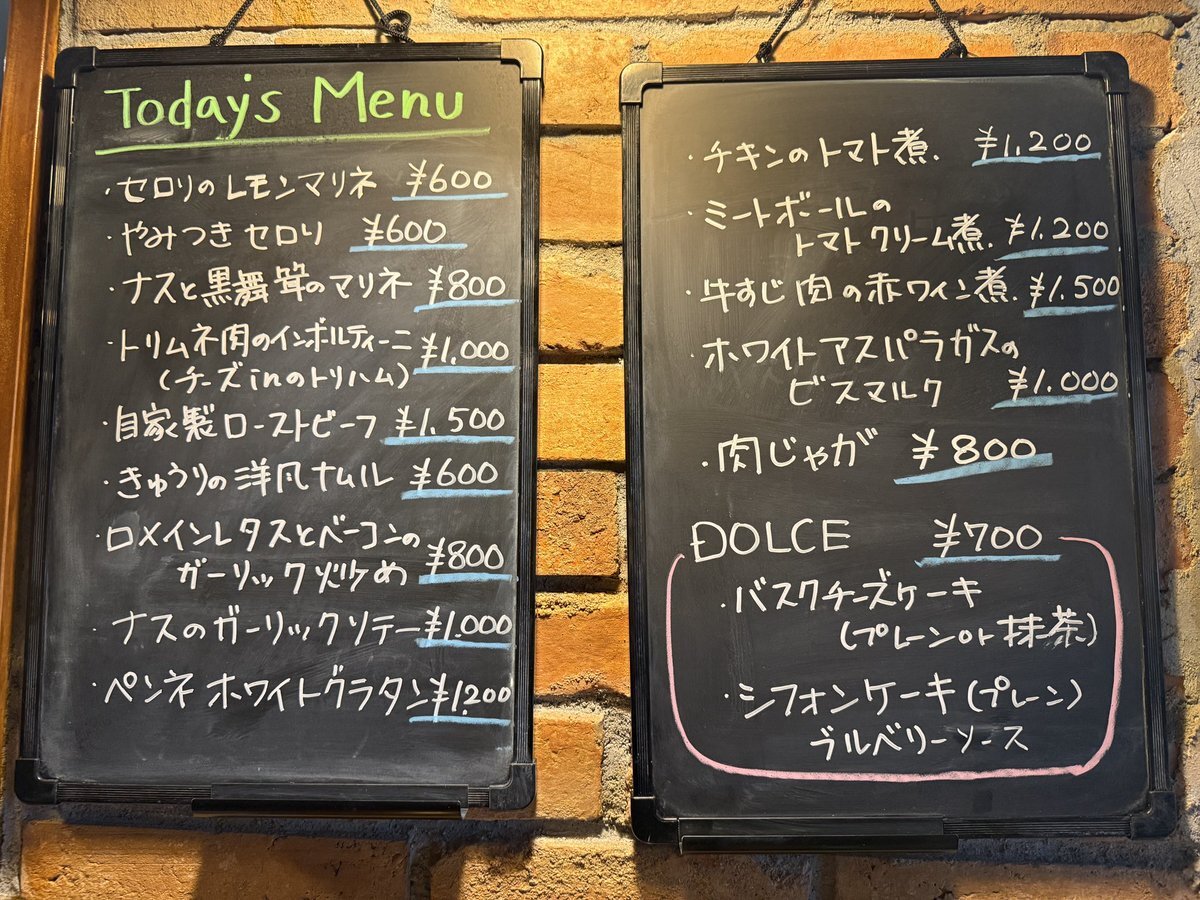 Today's Menu
・セロリのレモンマリネ ¥600
・やみつきセロリ ¥600
・ナスと黒舞茸のマリネ ¥800
・トリムネ肉のインボルティーニ ¥1,000
(チーズinのトリハム)
・自家製ローストビーフ ¥1,500
・きゅうりの洋風ナムル ¥600
・ロメインレタスとベーコンの
ガーリック炒め ¥800
・ナスのガーリックソテー ¥1.000
・ペンネ ホワイトグラタン ¥1.200
・チキンのトマト煮. ¥1,200
・ミートボールの
トマトクリーム煮. ¥1.200
・牛すじ肉の赤ワイン煮. ¥1.500
・ホワイトアスパラガスの
ビスマルク ¥1.000
・肉じゃが ¥800
DOLCE ¥700
・バスクチーズケーキ
(プレーンor抹茶)
・シフォンケーキ(プレーン)
ブルベリーソース